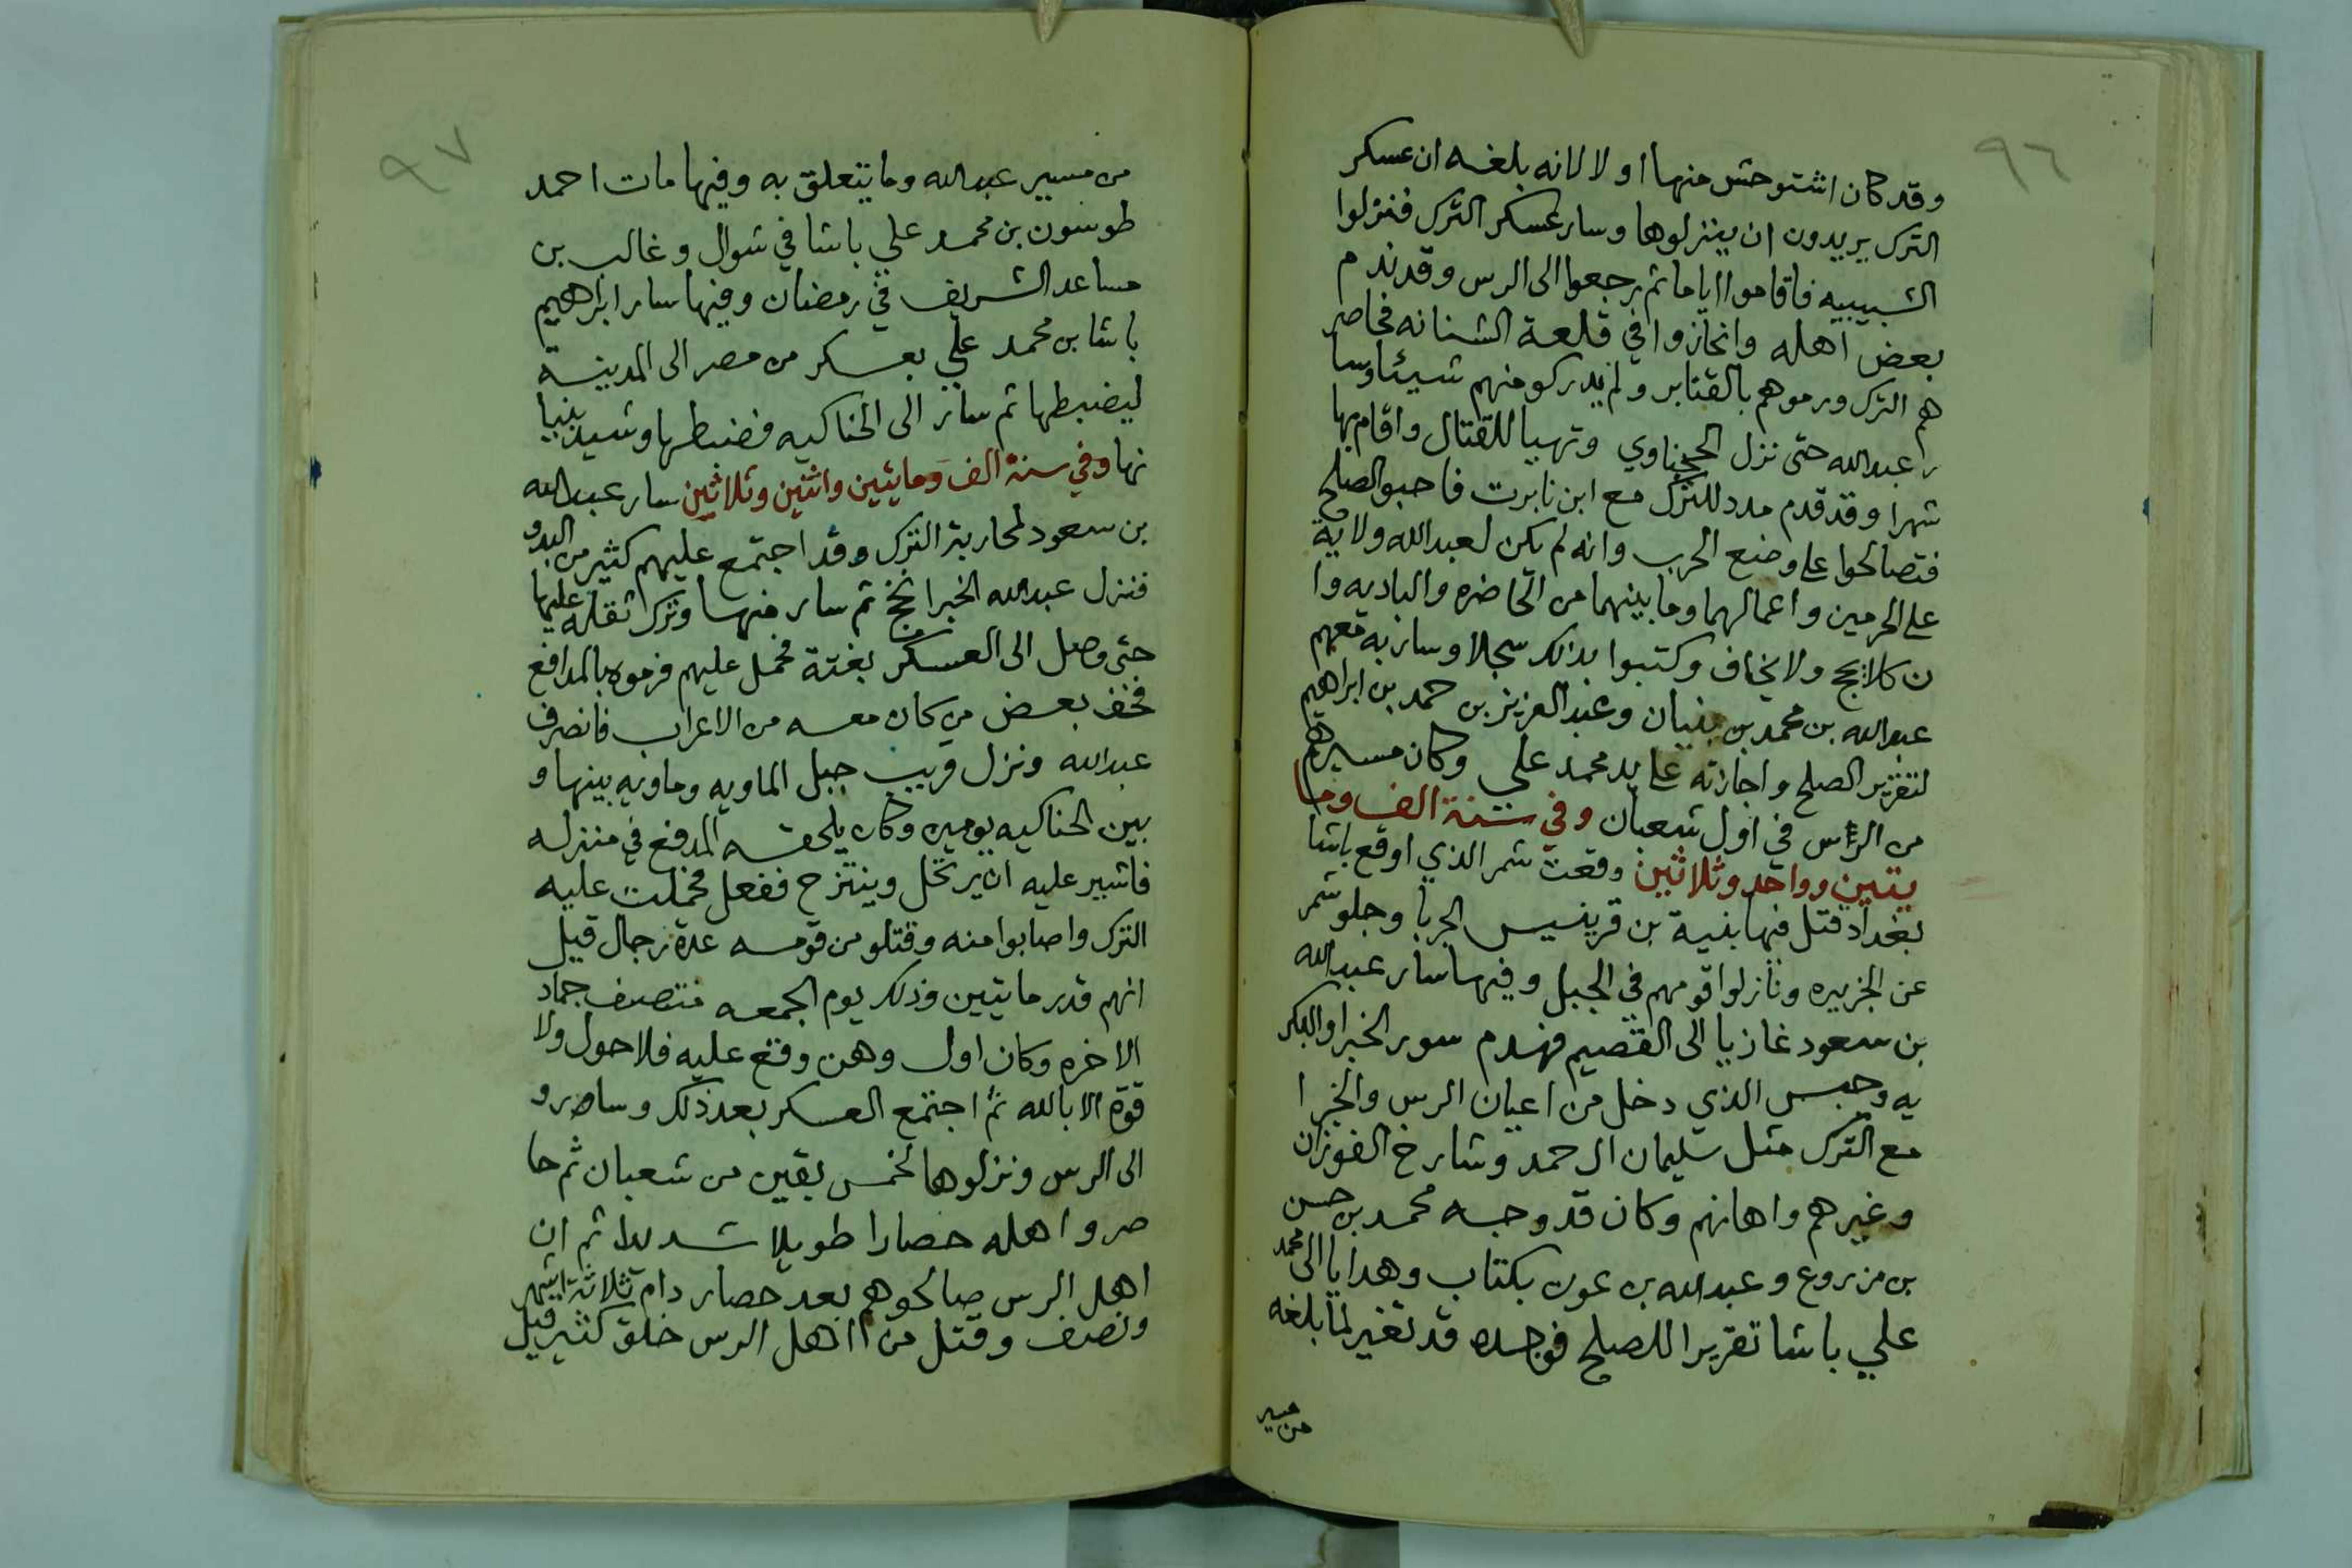 ٩٦
وقد كان اشتوحش منها اولا لانه بلغه ان عسكر
الترك يريدون ان ينزلوها وسار عسكر الترك فنزلوا
الشبيبيه فاقاموا اياما ثم رجعوا الى الرس وقد ندم
بعض اهله وانحازوا في قلعة الشنانه فحاصر
هم الترك ورموهم بالقنابر ولم يدركو منهم شيئا وسا
ر عبدالله حتى نزل الحجناوي وتهيا للقتال واقام بها
شهرا وقد قدم مدد للترك مع ابن نابرت فاحبو الصلح
فتصالحوا على وضع الحرب وانه لم يكن لعبدالله ولاية
على الحرمين واعمالهما وما بينهما من الحاضره والباديه وا
ن كلا يحج ولا يخاف وكتبوا بذلك سجلا وسار به معهم
عبدالله بن محمد بن بنيان وعبد العزيز بن حمد بن ابراهيم
لتقرير الصلح واجازته على يد محمد علي وكان مسيرهم
من الرس في اول شعبان وفي سنة الف وما
يتين وواحد وثلاثين وقعت شمر الذي اوقع باشا
بغداد قتل فيها بنية بن قرينيس الجربا وجلو شمر
عن الجزيره ونازلوا قومهم في الجبل وفيها سار عبدالله
بن سعود غازيا الى القصيم فهدم سور الخبرا والبكر
يه وحبس الذي دخل من اعيان الرس والخبرا
مع الترك مثل سليمان ال حمد وشارخ الفوزان
وغيرهم واهانهم وكان قد وجه محمد بن حسن
بن مزروع وعبدالله بن عون بكتاب وهدايا الى محمد
علي باشا تقريرا للصلح فوجده قد تغير لما بلغه
من مسير
٩٧
من مسير عبدالله وما يتعلق به وفيها مات احمد
طوسون بن محمد علي باشا في شوال وغالب بن
مساعد الشريف في رمضان وفيها سار ابراهيم
باشا بن محمد علي بعسكر من مصر الى المدينة
ليضبطها ثم سار الى الحناكيه فضبطها وشيد بنيا
نها وفي سنة الف ومايتين واثنين وثلاثين سار عبدالله
بن سعود لمحاربة الترك وقد اجتمع عليهم كثير من البدو
فنزل عبدالله الخبرا نجخ ثم سار منها وترك ثقله عليها
حتى وصل الى العسكر بغتة فحمل عليهم فرموه بالمدافع
فخف بعض من كان معه من الاعراب فانصرف
عبدالله ونزل قريب جبل الماويه وماويه بينها و
بين الحناكيه يومين وكان يلحقه المدفع في منزله
فاشير عليه ان يرتحل وينتزح ففعل فحملت عليه
الترك واصابوا منه وقتلو من قومه عدة رجال قيل
انهم قدر مايتين وذلك يوم الجمعه منتصف جماد
الاخره وكان اول وهن وقع عليه فلا حول ولا
قوة الا بالله ثم اجتمع العسكر بعد ذلك وسارو
الى الرس ونزلوها لخمس بقين من شعبان ثم حا
صروا اهله حصارا طويلا شديدا ثم ان
اهل الرس صالحوهم بعد حصار دام ثلاثة اشهر
ونصف وقتل من اهل الرس خلق كثير قيل